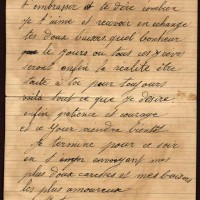 t'embrasser et te dire combien
je t'aime et recevoir en échange
tes doux baisers quel bonheur
le jours ou tous ces rêves
seront enfin la realité être
toute à toi pour toujours
voilà tout ce que je desire
enfin patience et courage
et ce jour viendra bientot
Je termine pour ce soir
en t'envoyant mes
plus douce caresses et mes baisers
les plus amoureux